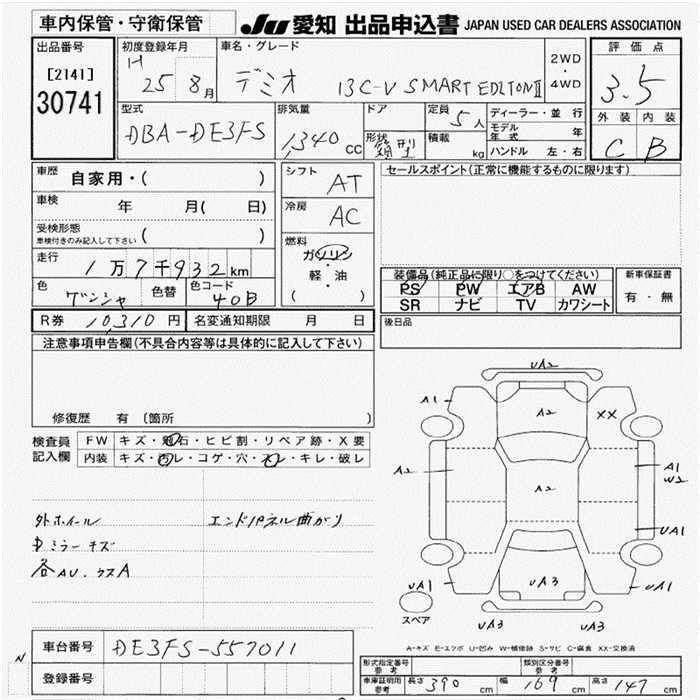 車内保管・守衛保管
JU 愛知 出品申込書 JAPAN USED CAR DEALERS ASSOCIATION
出品番号
[2141]
30741
初度登録年月
H 25 8月
車名・グレード
デミオ 13C-V SMART EDITION II
2WD
・
4WD
評価点
3.5
外装 内装
C B
型式
DBA-DE3FS
排気量
1,340 CC
ドア
形状
箱型
定員
5人
積載
kg
ディーラー・並行
モデル年式 年
ハンドル 左・右
車歴
自家用・( )
車検
年 月( 日)
受検形態
車検付きのみ記入して下さい ( )
走行
1万7千932km
色
グンジャ
色替
色コード
40B
シフト
AT
冷房
AC
燃料
ガソリン
・
軽・油
( )
セールスポイント(正常に機能するものに限ります)
装備品(純正品に限り○をつけてください)
PS PW エアB AW
SR ナビ TV カワシート
新車保証書
有・無
R券 10,310円
名変通知期限 月 日
後日品
注意事項申告欄(不具合内容等は具体的に記入して下さい)
修復歴 有 〔箇所 〕
検査員
記入欄
FW キズ・飛石・ヒビ割・リペア跡・X要
内装 キズ・汚レ・コゲ・穴・スレ・キレ・破レ
外ホイール
エンドパネル曲がり
ミラーキズ
各AU.ウスA
UA2
A1
A2
XX
A2
A1
W2
A2
UA1
UA1
UA3
UA1
UA3
UA3
スペア
A-キズ E-エクボ U-凹み W-補修跡 S-サビ C-腐食 XX-交換済
N
車台番号
DE3FS-557011
登録番号
形式指定番号
参考
類別区分番号
参考
車庫証明用
参考
長さ 390 cm 幅 169 cm 高さ 147 cm